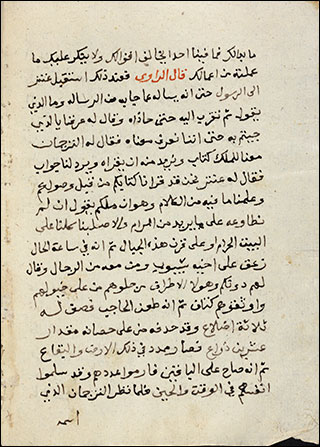 ما بدالك فما فينا احدا يخالف اقوالك ولا ينكر عليك ما
عملته من اعمالك قال الراوي فعند ذلك استقبل عنتر
الى الرسول حتى انه يساله عما جا به من الرساله وما الذي
يقوله ثم تقرب اليه حتى حاذاه وقال له عرفنا بالذي
جيتم به حتى اننا نعرف معناه فقال له الترجمان
معنا للملك كتاب ويريد منه ان يقراه ويرد لنا جواب
فقال له عنتر نحن قد قرانا كتابكم من قبل وصولكم
وعلمنا ما فيه من الكلام وهو ان ملككم يقول ان لم
نطاوعه على ما يريد من المرام والا صلبنا كلنا على
البيت الحرام او على قرن هذه الجبال ثم انه في ساعة الحال
زعق على اخيه شيبوب ومن معه من الرجال وقال
لهم دونكم وهولا الاطراف من حلوهم من على خيولهم
واوثقوهم كتاف ثم انه طعن الحاجب فصق له
ثلاثة اضلاع وقد حدفه من على حصانه مقدار
عشرين ذراع فصار ممدد في ذلك الارض والبقاع
ثم انه صاح على الباقين فارموا عددهم وقد سلموا
انفسهم في الوقت والحين فلما نظر الترجمان الذي
اسمه